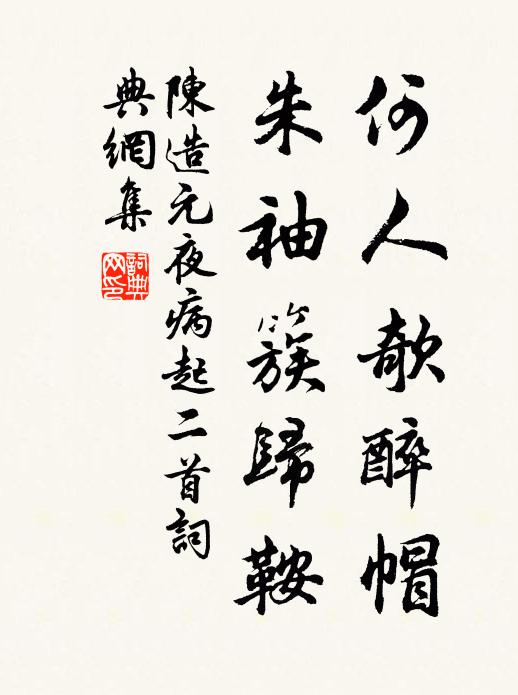 何人欹醉帽
朱袖簇歸鞍
陳造元夜病起二首詞
典網集
詞典
网印